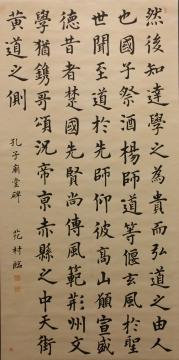 然後知達學之為貴而弘道之由人
也國子祭酒楊師道等偃玄風於聖
世聞至道於先師仰彼高山願宣盛
德昔者楚國先賢尚傳風範荊州文
學猶鐫哥頌況帝京赤縣之中天街
黃道之側
孔子廟堂碑
村臨